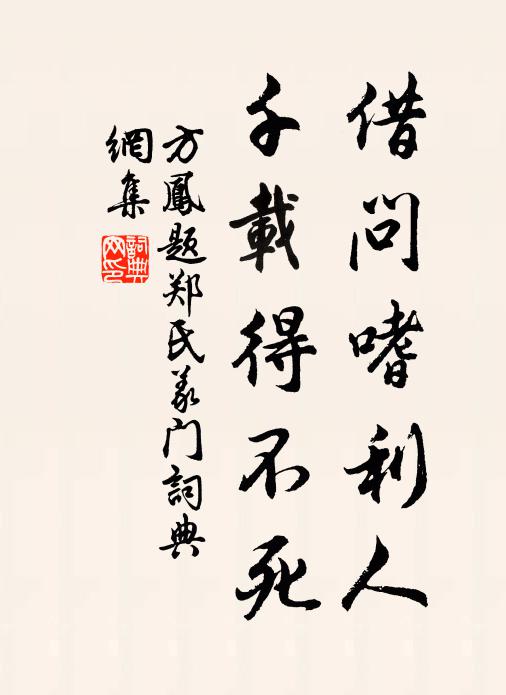 借问嗜利人
千載得不死
方鳳題郑氏义门詞典
網集
詞典
网印